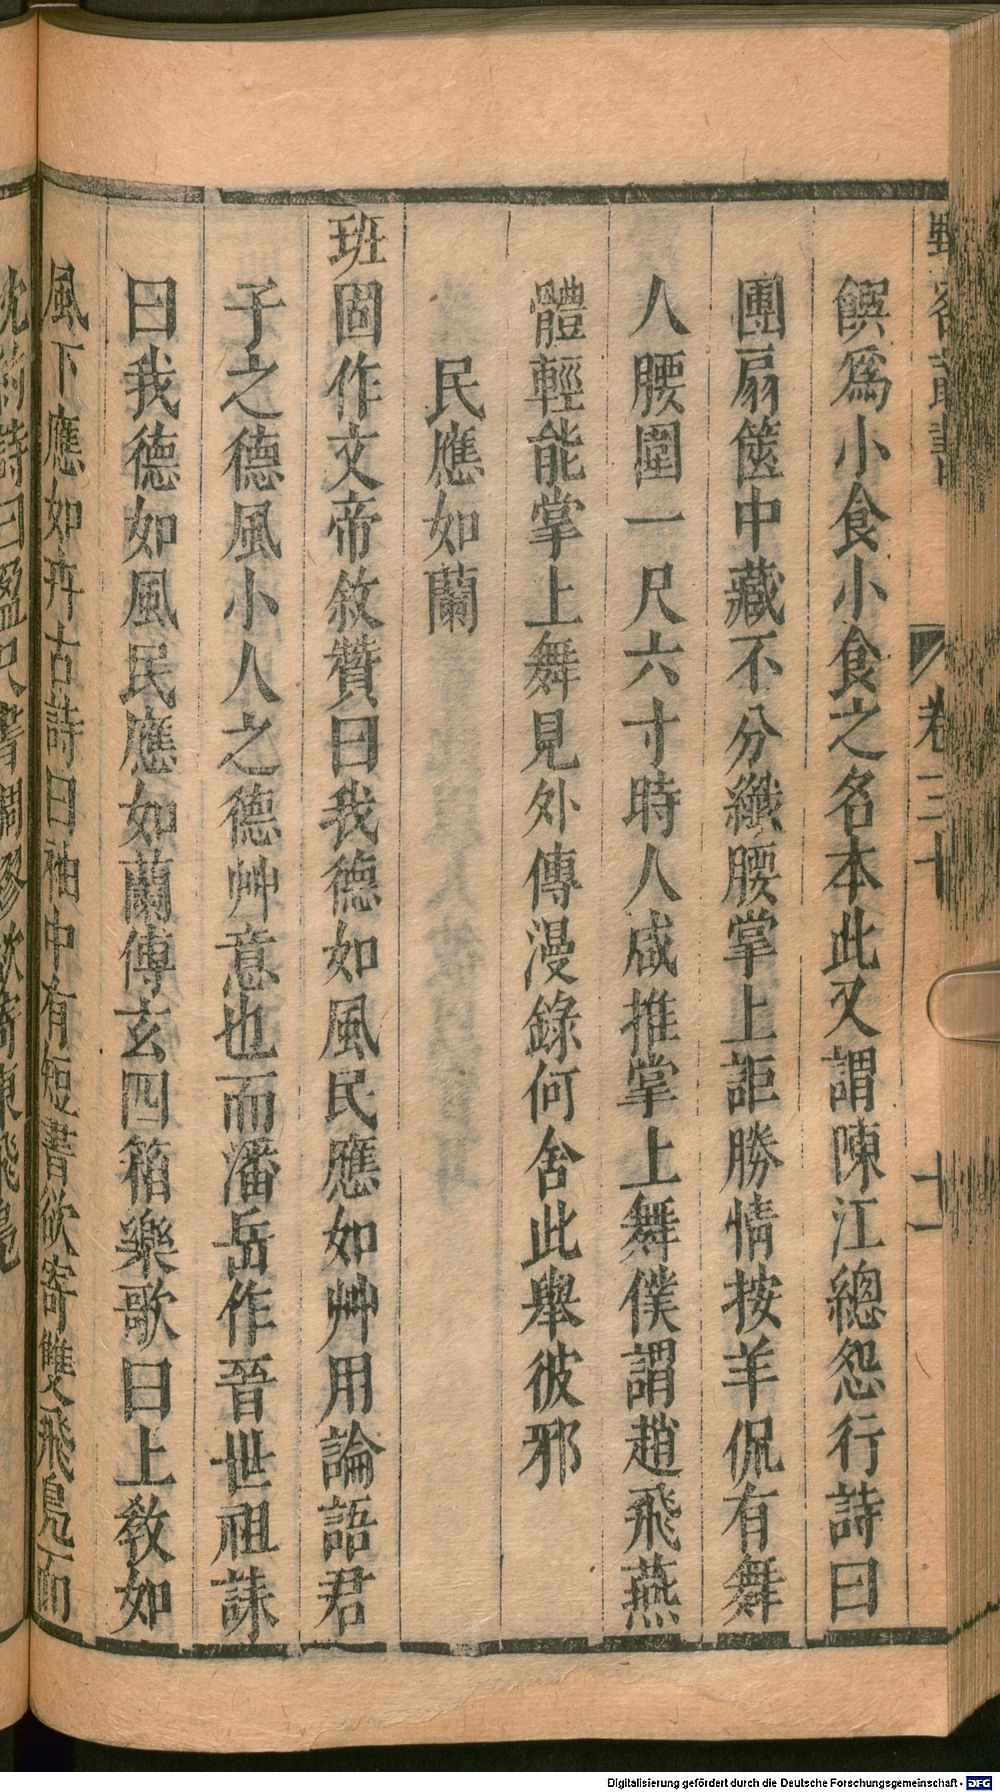 野客叢書 卷三十 十一
饌爲小食小食之名本此又謂陳江總怨行詩曰
團扇篋中藏不分纖腰掌上詎勝情按羊侃有舞
人腰圍一尺六寸時人咸推掌上舞僕謂趙飛燕
體輕能掌上舞見外傳漫錄何舍此舉彼邪
民應如蘭
班固作文帝敘贊曰我德如風民應如艸用論語君
子之德風小人之德艸意也而潘岳作晉世祖誄
曰我德如風民應如蘭傅玄四箱樂歌曰上敎如
風下應如卉古詩曰袖中有短書欲寄雙飛鳧而
沈約詩曰盈尺書綢繆欲寄東飛鳧
Digitalisierung gefördert durch die Deutsche Forschungsgemeinschaft - DFG